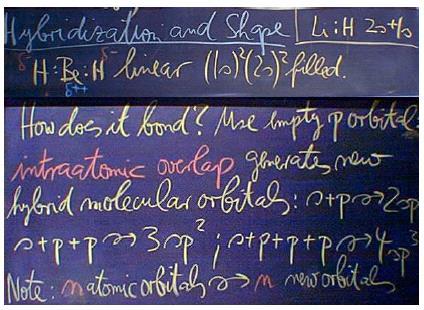 Hybridization and Shape | Li:H 2s+1s
δ- H:Be:H δ- linear (1s)²(2s)² filled.
δ++
How does it bond? Use empty p orbitals
intraatomic overlap generates new
hybrid molecular orbitals: s+p → 2sp
s+p+p → 3sp²; s+p+p+p → 4sp³
Note: n atomic orbitals → n new orbitals